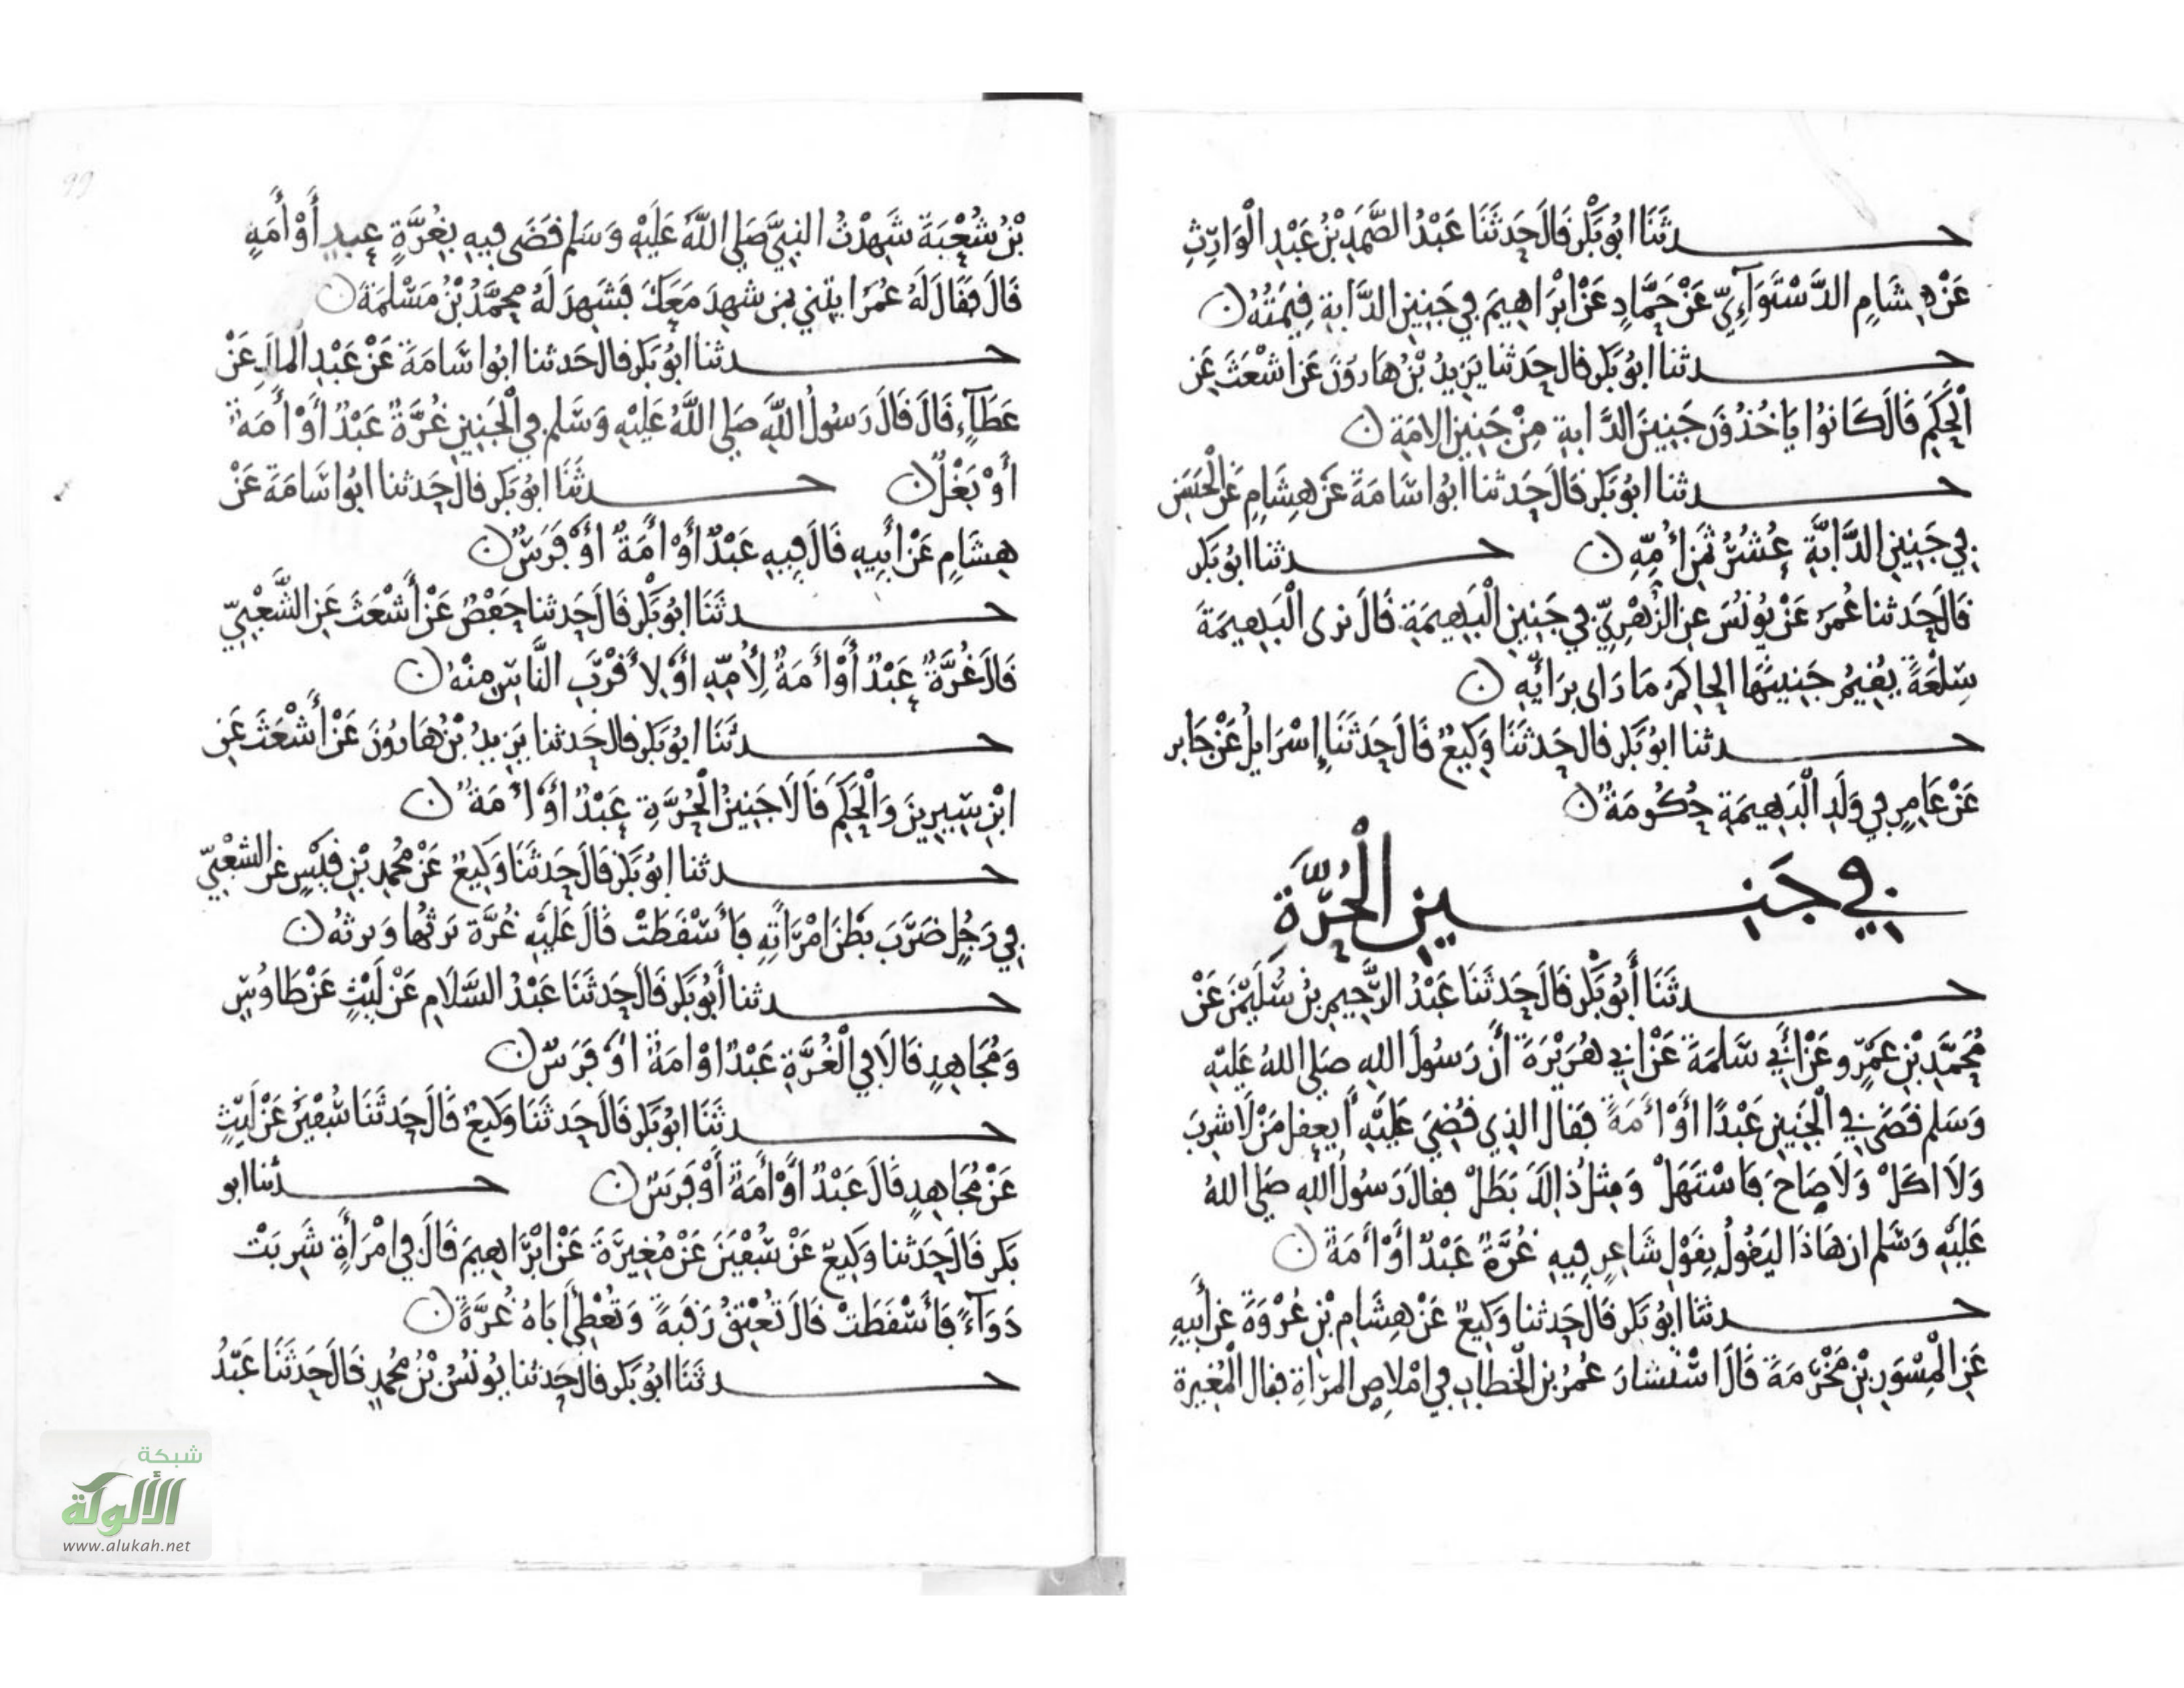 حدثَنَا ابُو بَكْر قَالَ حَدثَنَا عَبْدُ الصَّمَدِ بْنُ عَبْدِ الْوَارِثِ
عَنْ هِشَامِ الدَّسْتَوَآءِيِّ عَنْ حَمَّادٍ عَنْ ابْرَاهِيمَ في جَنِينِ الدَّابةِ قِيمَتُهُ ن
حدثنا ابُو بَكر قال حَدثنا يَزِيدُ بْنُ هَارُونَ عَن اشْعَثَ عَنِ
الْحَكَمِ قَالَ كَانُوا يَاخُذُونَ جَنِينَ الدَّابةِ مِنْ جَنِينِ الامَةِ ن
حدثنا ابُو بَكر قَالَ حَدثنا ابُوا سَامَةَ عَنْ هِشَامِ عَنِ الْحَسَنِ
فِي جَنِينِ الدَّابَّةِ عُشْرُ ثَمَنِ أُمِّهِ ن حدثنا ابُو بَكر
قَالَ حَدثنا عُمَرُ عَنْ يُونُسَ عنِ الزُّهْرِيِّ في جَنِينِ الْبَهِيمَةِ قَالَ نرى الْبَهِيمَةَ
سِلْعَةً يُقِيمُ جَنِينَهَا الحاكِمُ مَا رَاى بِرَايِهِ ن
حدثنا ابُو بَكر قال حَدثَنَا وَكِيعٌ قَالَ حَدثَنَا إِسْرَايلُ عَنْ جَابر
عَنْ عَامِرٍ في وَلَدِ الْبَهِيمَةِ حُكُومَةٌ ن
في جَنِين الْحُرَّةِ
حدثَنَا أَبُو بَكْر قَالَ حَدثَنَا عَبْدُ الرَّحِيمِ بْنُ سُلَيْمَنَ عَنْ
مُحَمَّدِ بْنِ عَمْرٍو عَنْ أَبِي سَلَمَةَ عَنْ ابي هُرَيْرَةَ أَن رَسُولَ اللهِ صَلى اللهُ عَلَيْهِ
وَسَلم قَضَى فِي الْجَنِينِ عَبْدًا أَوْ أَمَةً فقال الذِي قُضِيَ عَلَيْهِ أَيعقل مَنْ لَا شرِبَ
وَلَا اكَلْ وَلَا صَاحَ فَاسْتَهَلْ وَمِثلُ ذَالِكَ بَطَلْ فقال رَسُولُ اللهِ صَلى اللهُ
عَلَيْهِ وَسَلم ان هَاذَا ليَقُولُ بِقَوْلِ شَاعِرٍ فِيهِ غُرَّةٌ عَبْدٌ أَوْ أَمَةٌ ن
حدثنا ابُو بَكر قَالَ حَدثنا وَكِيعٌ عَنْ هِشَامِ بْنِ عُرْوَةَ عَن أَبِيهِ
عَنِ الْمِسْوَرِ بْنِ مَخْرَمَةَ قَالَ اسْتَشَارَ عُمَرُ بن الْخَطابِ في امْلاصِ المرْاةِ فقال الْمُغِيرة
بْنُ شُعْبَةَ شَهِدْتُ النبِيَّ صَلى اللَّهُ عَلَيْهِ وَسَلم قَضَى فِيهِ بِغُرَّةٍ عبدٍ أَوْ أَمَةٍ
قَالَ فَقَالَ لَهُ عُمَرُ ايتِني بمَن شهِدَ مَعَكَ فشَهِدَ لَهُ مُحمَّدُ بْنُ مَسْلَمَةَ ن
حدثنا ابُو بَكر قال حَدثنا ابُوا سَامَةَ عَنْ عَبْدِ الملك عَنْ
عَطَآءٍ قَالَ قَالَ رَسُولُ اللَّهِ صَلى اللَّهُ عَلَيْهِ وَسَلم في الْجَنِينِ غُرَّةٌ عَبْدٌ أَوْ أَمَةٌ
أَوْ بَغْلٌ ن حدثَنَا ابُو بَكر قال حَدثنا ابُوا سَامَةَ عَنْ
هِشَامِ عَنْ أَبِيهِ قَالَ فِيهِ عَبْدٌ أَوْ أَمَةٌ أَوْ فَرَسٌ ن
حدثَنَا ابُو بَكْر قَالَ حَدثنا حَفْصٌ عَنْ أَشْعَثَ عَنِ الشَّعْبِيِّ
قَالَ غُرَّةٌ عَبْدٌ أَوْ أَمَةٌ لِأُمِّهِ أَوْ لِأَقْرَبِ النَّاسِ مِنْهُ ن
حدثَنَا ابُو بَكر قال حَدثنا يَزِيدُ بْنُ هَارُونَ عَنْ أَشْعَثَ عَنِ
ابْنِ سِيرِينَ وَالْحَكَمِ قَالَا جَنِينُ الْحُرَّةِ عَبْدٌ أَوْ أَمَةٌ ن
حدثنا ابُو بَكْر قَالَ حَدثَنَا وَكِيعٌ عَنْ مُحَمدِ بْنِ قَيْسٍ عَنِ الشعْبِيِّ
فِي رَجُلٍ ضَرَبَ بَطْنَ امْرَأَتِهِ فَأَسْقَطَتْ قَالَ عَلَيْهِ غُرَّة تَرثُها وَيرثهُ ن
حدثنا أَبُو بَكر قَالَ حَدثَنَا عَبْدُ السَّلَامِ عَنْ لَيْثٍ عَنْ طَاوُسٍ
وَمُجَاهِدٍ قَالَا في الْغُرَّةِ عَبْدٌ اوْ امَةٌ اوْ فَرَسٌ ن
حدثَنَا ابُو بَكر قَالَ حَدثَنَا وَكِيعٌ قَالَ حَدثَنَا سُفْيَنُ عَنْ لَيْثٍ
عَنْ مُجَاهِدٍ قَالَ عَبْدٌ أَوْ أَمَةٌ أَوْ فَرَسٌ ن حدثنا ابو
بَكر قَالَ حَدثنا وَكِيعٌ عَنْ سُفْيَنَ عَنْ مُغِيرَةَ عَنْ ابْرَاهِيمَ قَالَ في امْرَأَةٍ شَرِبَتْ
دَوَآءً فَأَسْقَطَتْ قَالَ تُعْتِقُ رَقَبَةً وَتُعْطِي أَبَاهُ غُرَّةً ن
حدثَنَا ابُو بَكر قال حَدثنا يُونُسُ بْنُ مُحَمدٍ قَالَ حَدثَنَا عَبْدُ
99
شبكة
الألوكة
www.alukah.net